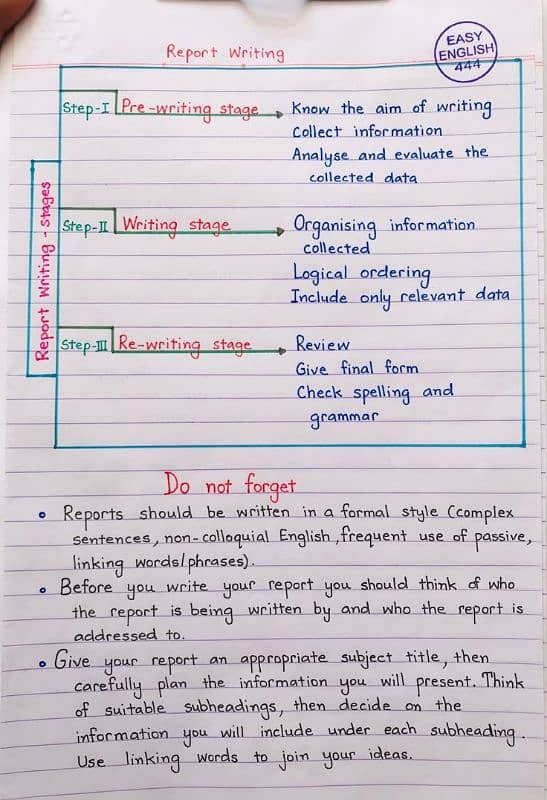 Report Writing
EASY
ENGLISH
444
Report Writing - stages
Step-I Pre-writing stage
Know the aim of writing
Collect information
Analyse and evaluate the
collected data
Step-II Writing stage
Organising information
collected
Logical ordering
Include only relevant data
Step-III Re-writing stage
Review
Give final form
Check spelling and
grammar
Do not forget
• Reports should be written in a formal style (complex
sentences, non-colloquial English, frequent use of passive,
linking words/phrases).
• Before you write your report you should think of who
the report is being written by and who the report is
addressed to.
• Give your report an appropriate subject title, then
carefully plan the information you will present. Think
of suitable subheadings, then decide on the
information you will include under each subheading.
Use linking words to join your ideas.